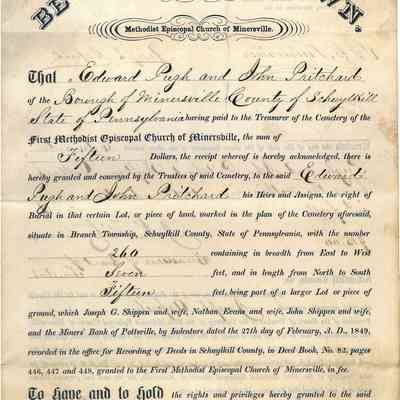 BE WN.
Methodist Episcopal Church of Minersville.
That Edward Pugh and John Pritchard
of the Borough of Minersville County of Schuylkill
State of Pennsylvania having paid to the Treasurer of the Cemetery of the
First Methodist Episcopal Church of Minersville, the sum of
Fifteen Dollars, the receipt whereof is hereby acknowledged, there is
hereby granted and conveyed by the Trustees of said Cemetery, to the said Edward
Pugh and John Pritchard his Heirs and Assigns, the right of
Burial in that certain Lot, or piece of land, marked in the plan of the Cemetery aforesaid,
situate in Branch Township, Schuylkill County, State of Pennsylvania, with the number
260 containing in breadth from East to West
Seven feet, and in length from North to South
Fifteen feet, being part of a larger Lot or piece of
ground, which Joseph G. Shippen and wife, Nathan Evans and wife, John Shippen and wife,
and the Miners' Bank of Pottsville, by Indenture dated the 27th day of February, A. D., 1849,
recorded in the office for Recording of Deeds in Schuylkill County, in Deed Book, No. 82, pages
446, 447 and 448, granted to the First Methodist Episcopal Church of Minersville, in fee.
To Have and to Hold the rights and privileges hereby granted to the said